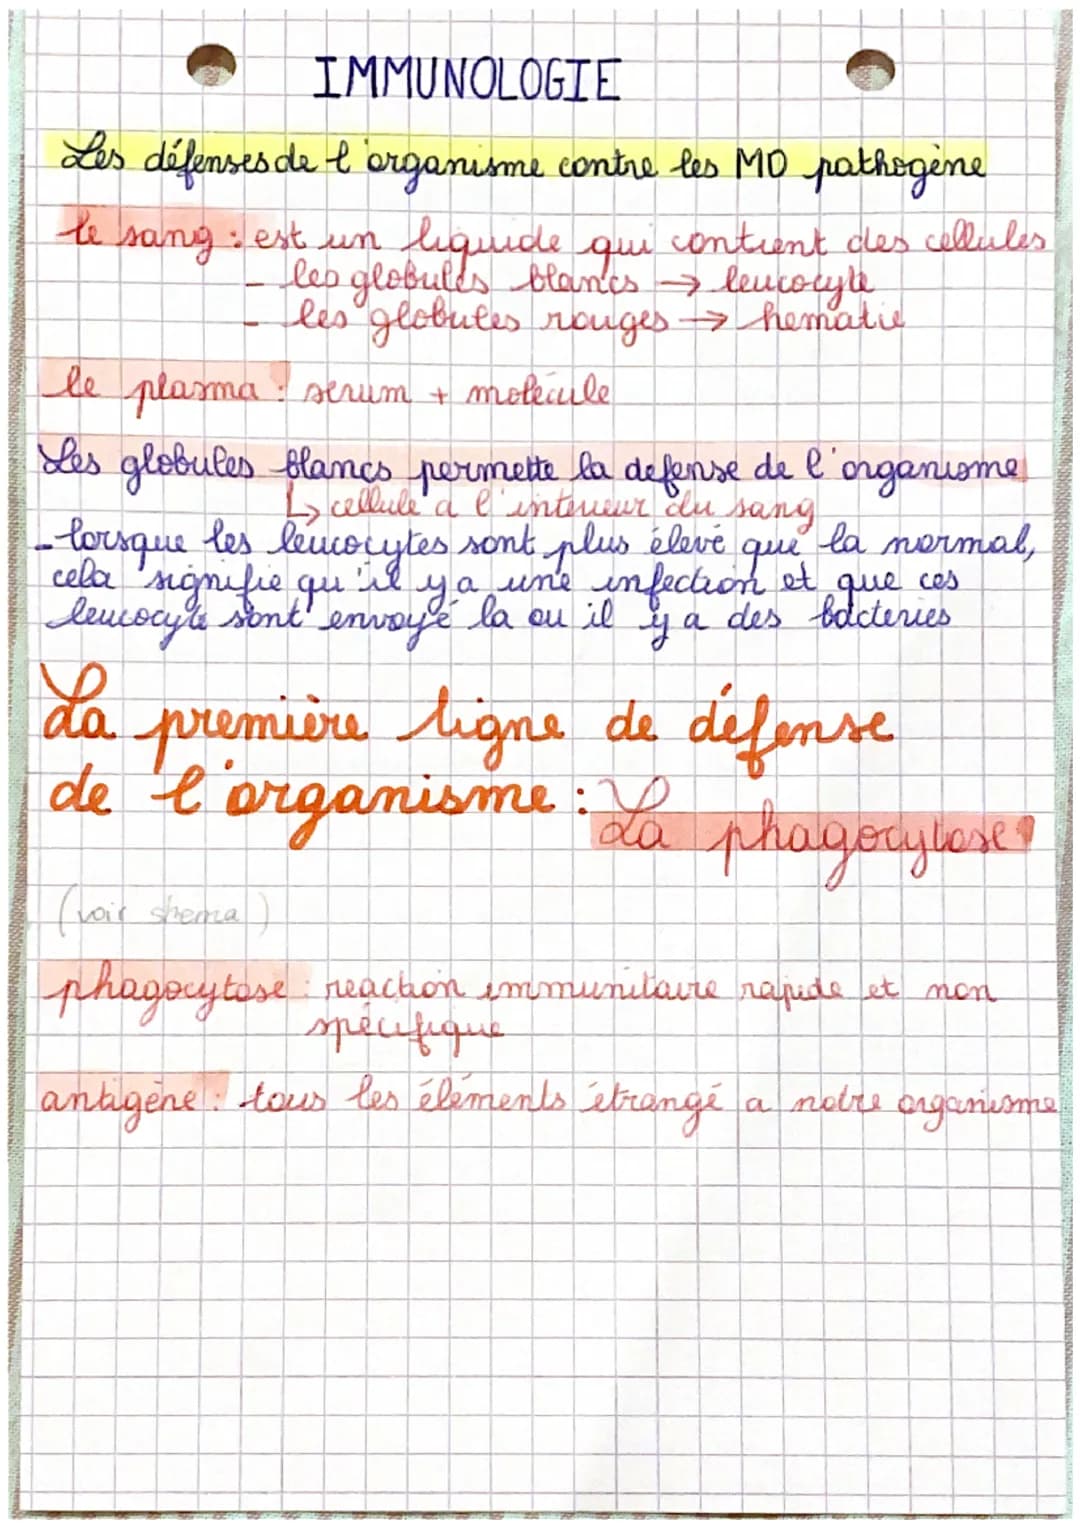 IMMUNOLOGIE
Les défenses de l'organisme contre les MO pathogène
le sang : est un liquide qui contient des cellules
- les globules blancs → leucocyte
- les globules rouges → hematie
le plasma : serum + molécule
Les globules blancs permette la defense de l'organisme
↳ cellule a l'interieur du sang
- lorsque les leucocytes sont plus élevé que la normal,
cela signifie qu'il y a une infection et que ces
leucocyte sont envoyé la ou il y a des bacteries
La première ligne de défense
de l'organisme : La phagocytose
(voir shema)
phagocytose : reaction immunitaire rapide et non
spécifique
antigène : tous les éléments étrangé a notre organisme